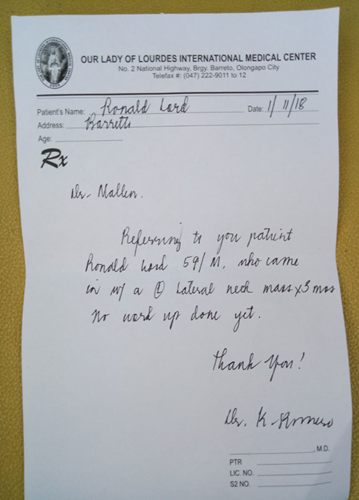 OUR LADY OF LOURDES INTERNATIONAL MEDICAL CENTER
No. 2 National Highway, Brgy. Barreto, Olongapo City
Telefax #: (047) 222-9011 to 12
Patient's Name: Ronald Lord Date: 1/11/18
Address: Barretto
Age:
Rx
Dr. Mallen.
Referring to you patient
Ronald Lord 59/M, who came
in w/ a Ⓛ lateral neck mass x 3 mos
No work up done yet.
Thank you!
Dr. K. Romero
M.D.
PTR
LIC. NO.
S2 NO.